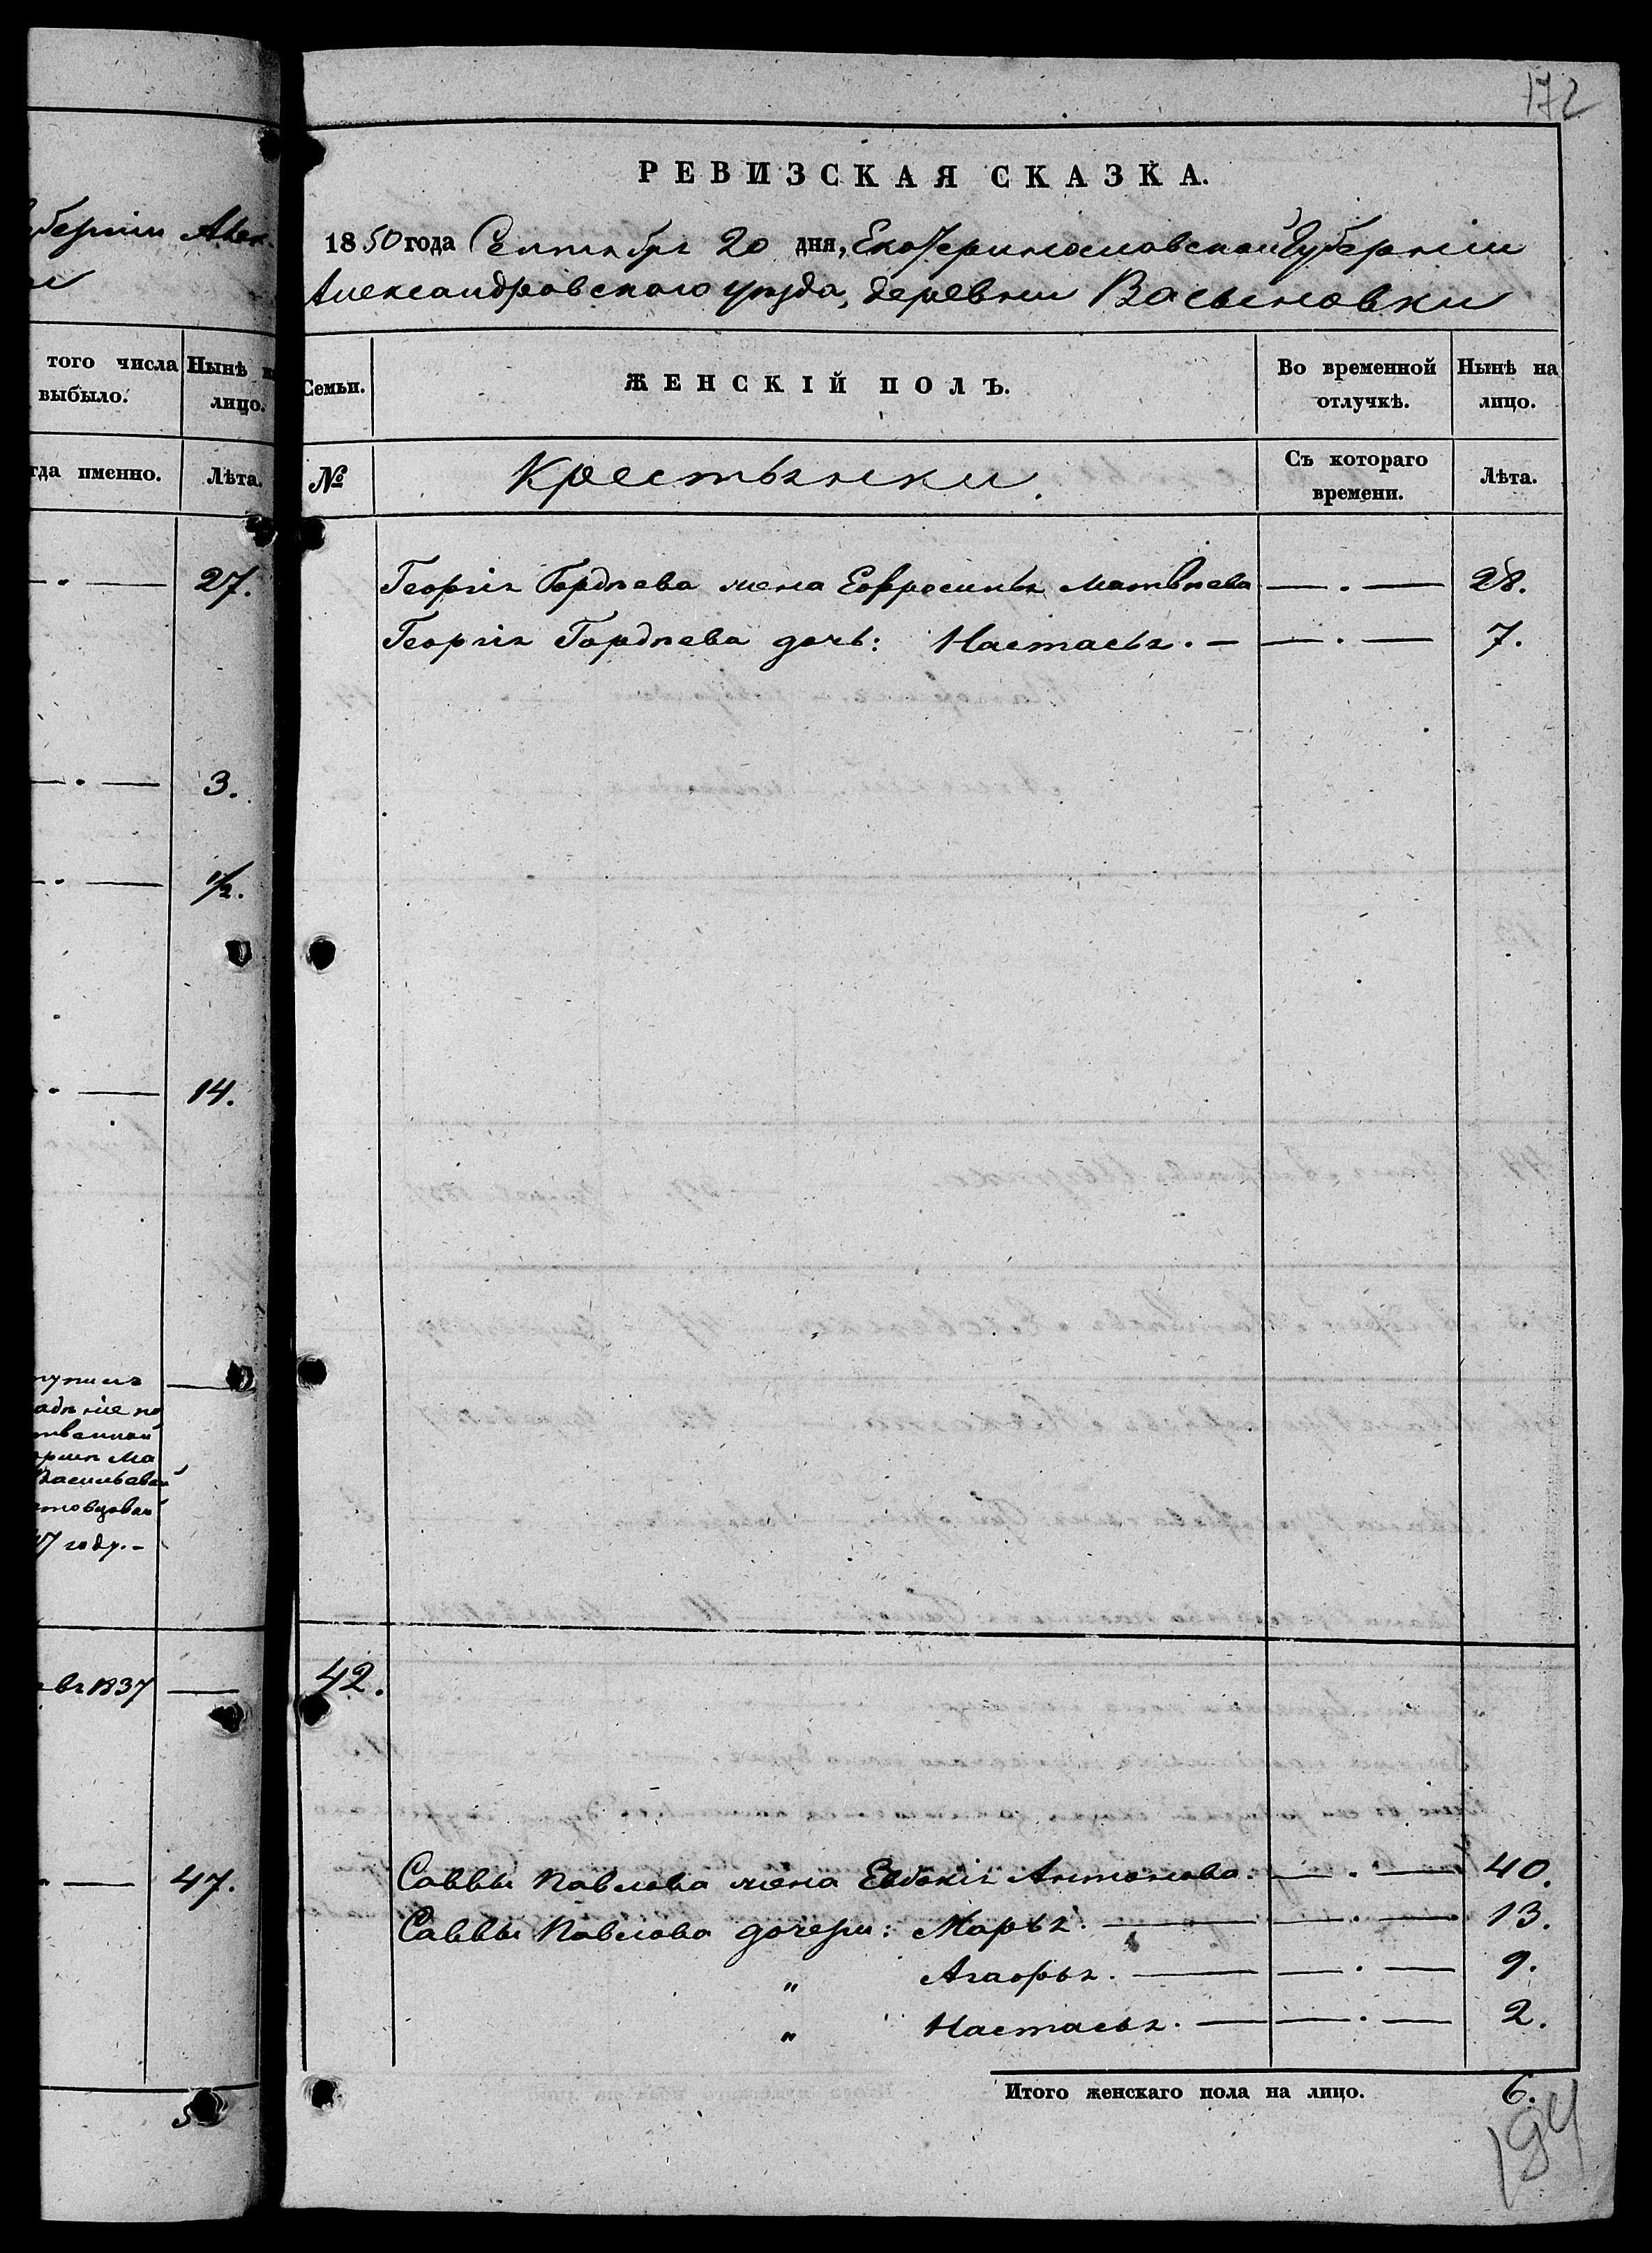 губерніи Алек-
того числа выбыло.
Нынѣ на лицо.
гда именно.
Лѣта.
27.
3.
1/2.
14.
47 году.-
въ 1837
47.
5
172
РЕВИЗСКАЯ СКАЗКА.
1850 года Сентября 20 дня, Екатеринославской Губерніи
Александровскаго уѣзда, деревни Васьиновки
Семьи.
ЖЕНСКІЙ ПОЛЪ.
Во временной отлучкѣ.
Нынѣ на лицо.
№
Крестьянки.
Съ котораго времени.
Лѣта.
Георгія Гордѣева жена Ефросинья Матвѣева — . — 28.
Георгія Гордѣева дочь: Настасья. — — . — 7.
42.
Саввы Павлова жена Евдокія Антонова. — . — 40.
Саввы Павлова дочери: Марья. — — . — 13.
" Агафья. — — . — 9.
" Настасья. — — . — 2.
Итого женскаго пола на лицо. 6.
194